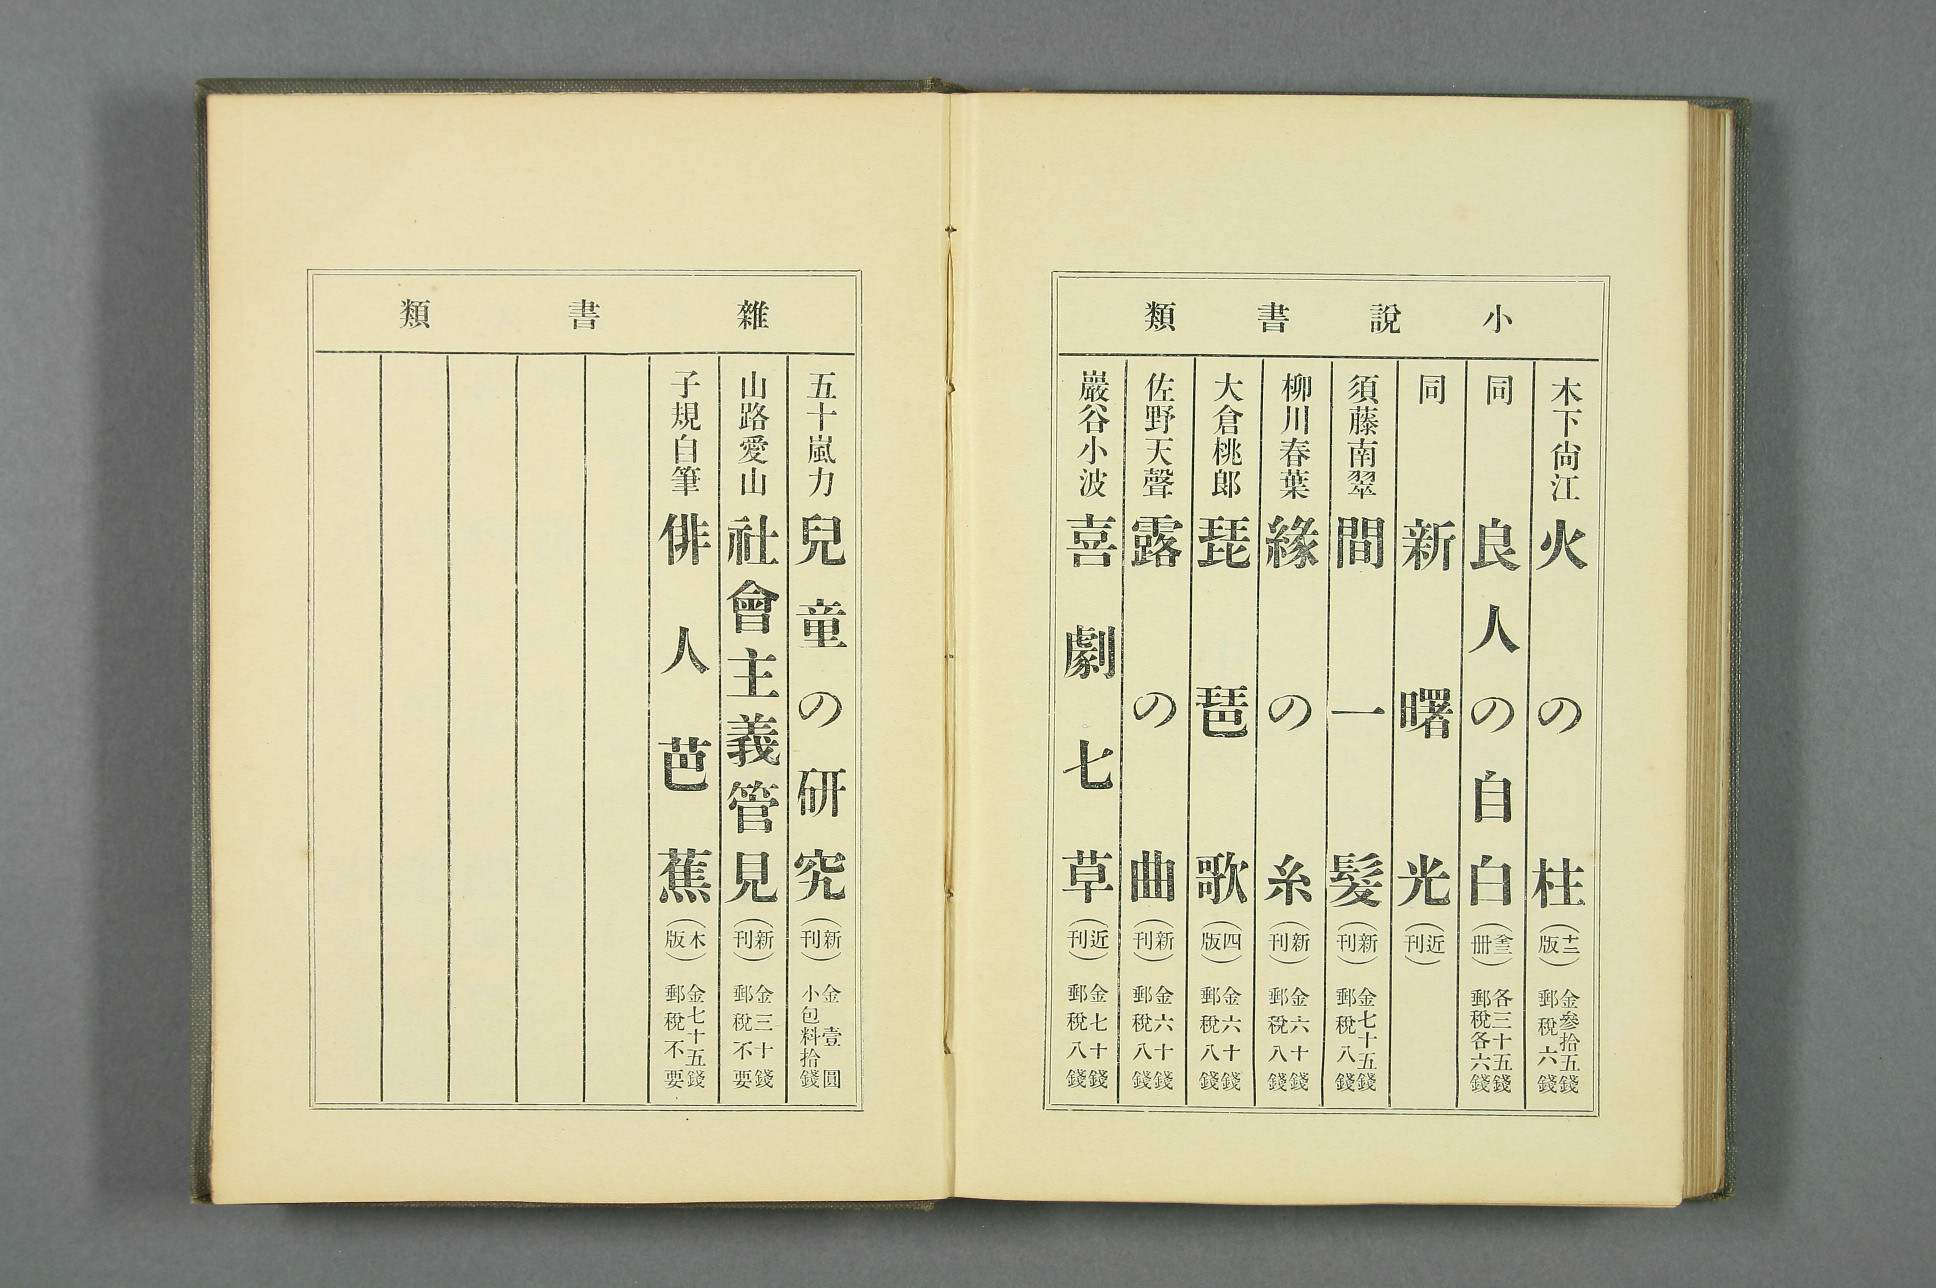 小說書類
木下尙江 火の柱 (十二版) 金參拾五錢 郵稅六錢
同 良人の自白 (全三冊) 各三十五錢 郵稅各六錢
同 新曙光 (近刊)
須藤南翠 間一髮 (新刊) 金七十五錢 郵稅八錢
柳川春葉 緣の糸 (新刊) 金六十錢 郵稅八錢
大倉桃郎 琵琶歌 (四版) 金六十錢 郵稅八錢
佐野天聲 露の曲 (新刊) 金六十錢 郵稅八錢
巖谷小波 喜劇七草 (近刊) 金七十錢 郵稅八錢
雜書類
五十嵐力 兒童の硏究 (新刊) 金壹圓 小包料拾錢
山路愛山 社會主義管見 (新刊) 金三十錢 郵稅不要
子規自筆 俳人芭蕉 (木版) 金七十五錢 郵稅不要